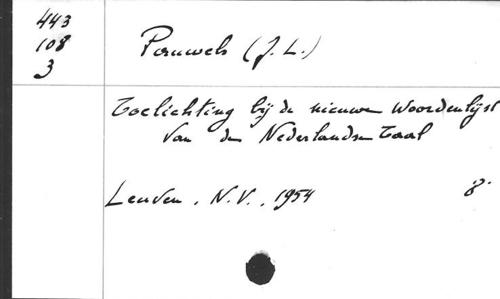 443
108
3
Pauwels (J. L.)
Toelichting bij de nieuwe Woordenlijst
van de Nederlandse Taal
Leuven, N.V., 1954
8°